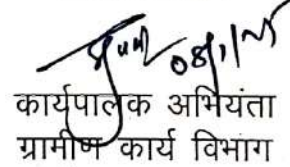 कार्यपालक अभियंता
ग्रामीण कार्य विभाग